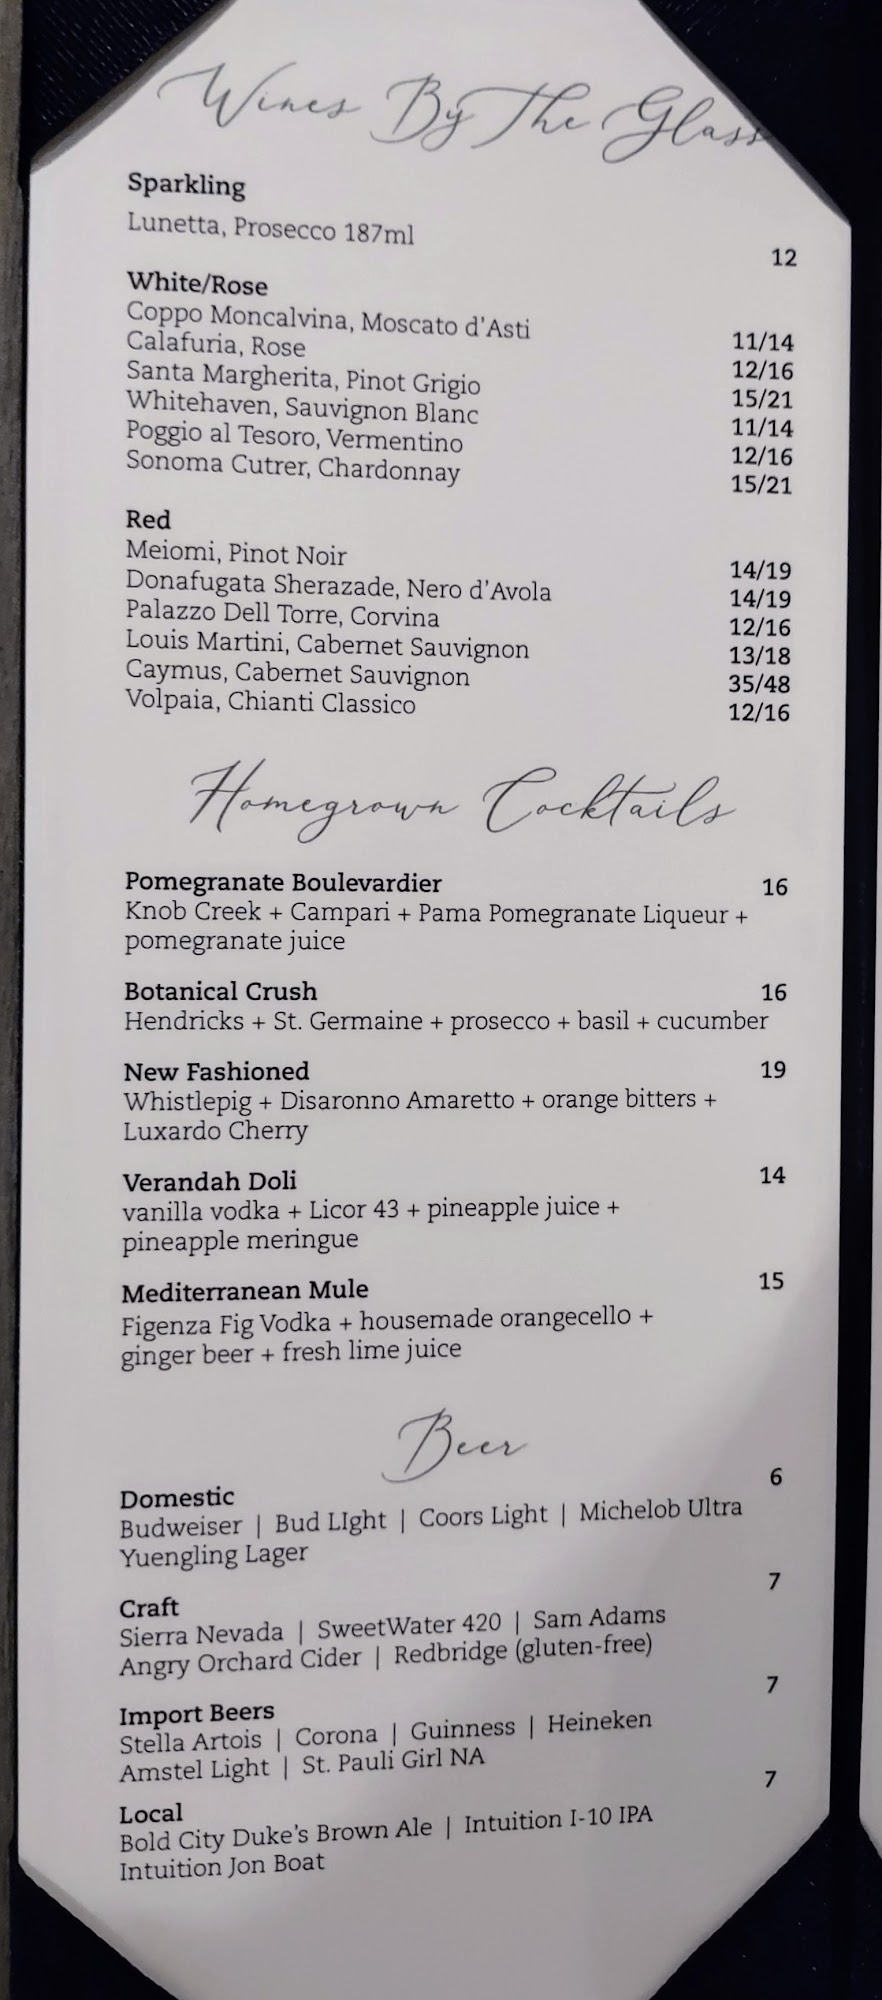 Wines By The Glass
Sparkling
Lunetta, Prosecco 187ml 12
White/Rose
Coppo Moncalvina, Moscato d'Asti 11/14
Calafuria, Rose 12/16
Santa Margherita, Pinot Grigio 15/21
Whitehaven, Sauvignon Blanc 11/14
Poggio al Tesoro, Vermentino 12/16
Sonoma Cutrer, Chardonnay 15/21
Red
Meiomi, Pinot Noir 14/19
Donafugata Sherazade, Nero d'Avola 14/19
Palazzo Dell Torre, Corvina 12/16
Louis Martini, Cabernet Sauvignon 13/18
Caymus, Cabernet Sauvignon 35/48
Volpaia, Chianti Classico 12/16
Homegrown Cocktails
Pomegranate Boulevardier 16
Knob Creek + Campari + Pama Pomegranate Liqueur +
pomegranate juice
Botanical Crush 16
Hendricks + St. Germaine + prosecco + basil + cucumber
New Fashioned 19
Whistlepig + Disaronno Amaretto + orange bitters +
Luxardo Cherry
Verandah Doli 14
vanilla vodka + Licor 43 + pineapple juice +
pineapple meringue
Mediterranean Mule 15
Figenza Fig Vodka + housemade orangecello +
ginger beer + fresh lime juice
Beer
Domestic 6
Budweiser | Bud LIght | Coors Light | Michelob Ultra
Yuengling Lager
Craft 7
Sierra Nevada | SweetWater 420 | Sam Adams
Angry Orchard Cider | Redbridge (gluten-free)
Import Beers 7
Stella Artois | Corona | Guinness | Heineken
Amstel Light | St. Pauli Girl NA
Local 7
Bold City Duke's Brown Ale | Intuition I-10 IPA
Intuition Jon Boat